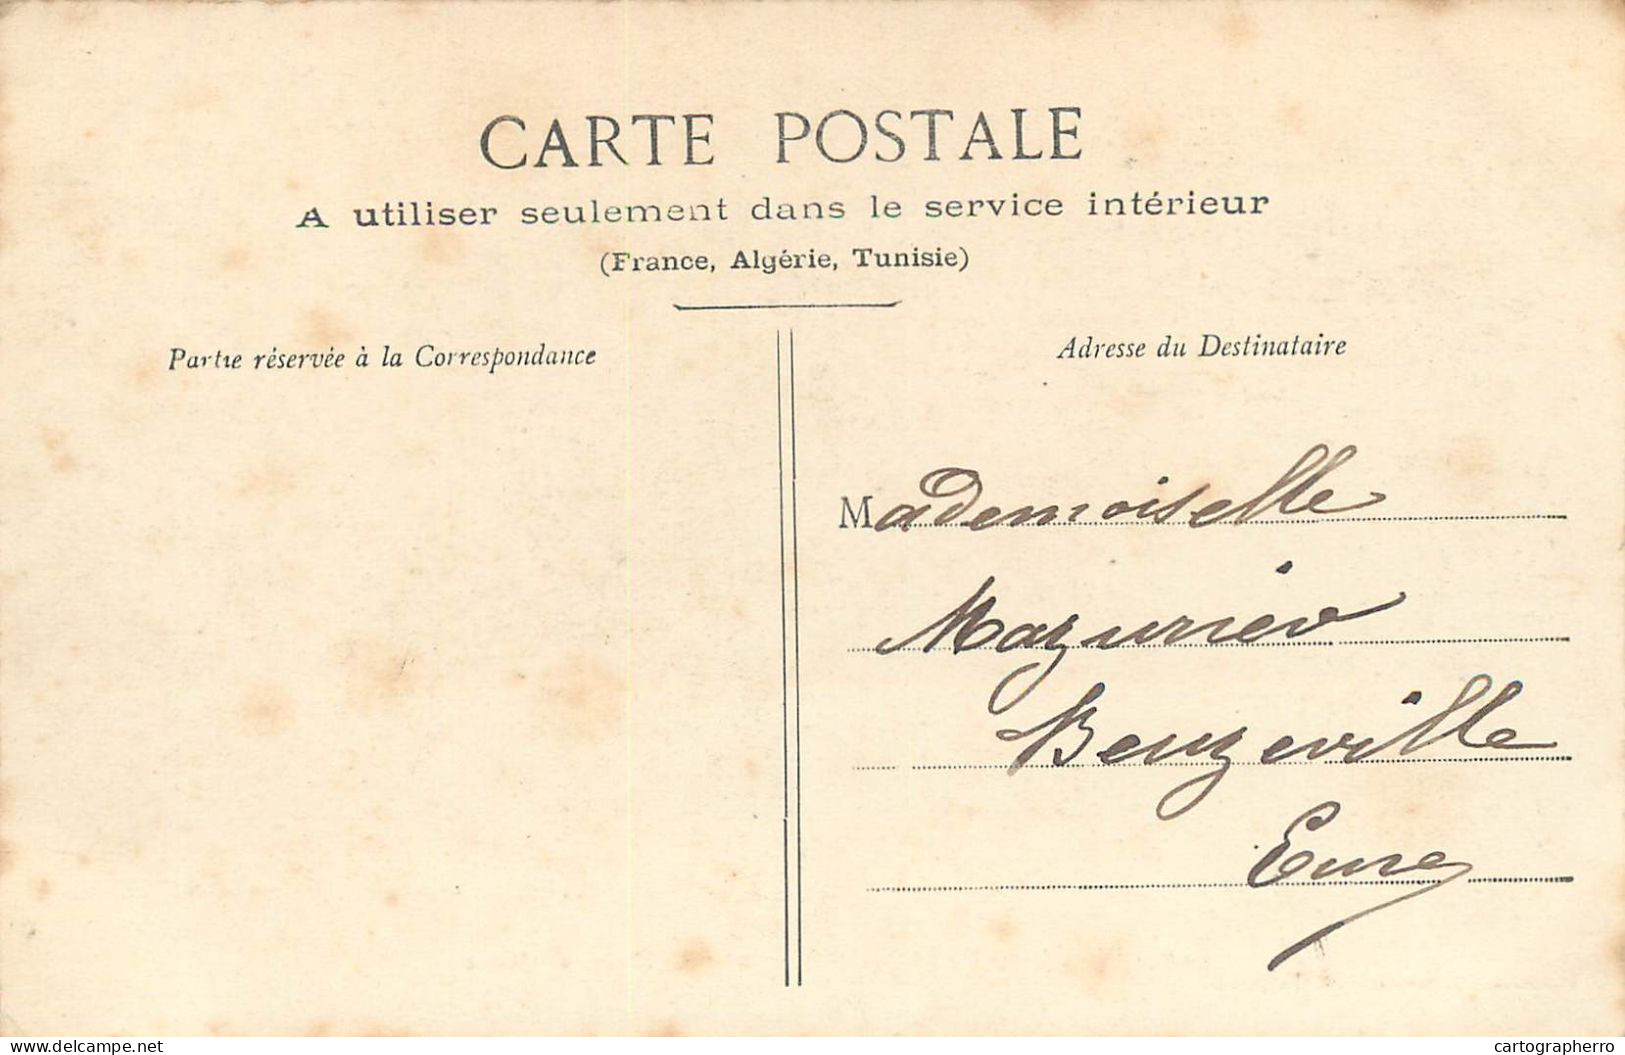 CARTE POSTALE
A utiliser seulement dans le service intérieur
(France, Algérie, Tunisie)
Partie réservée à la Correspondance
Adresse du Destinataire
Mademoiselle
Mazurier
Beuzeville
Eure
www.delcampe.net
cartographerro